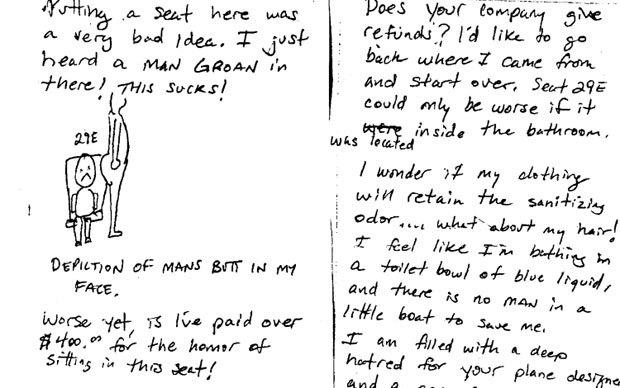 Putting a seat here was
a very bad idea. I just
heard a MAN GROAN in
there! THIS SUCKS!
29E
DEPICTION OF MANS BUTT IN MY
FACE.
Worse yet, is I've paid over
$400.00 for the honor of
sitting in this seat!
Does your company give
refunds? I'd like to go
back where I came from
and start over. Seat 29E
could only be worse if it
was located inside the bathroom.
I wonder if my clothing
will retain the sanitizing
odor.... what about my hair!
I feel like I'm bathing in
a toilet bowl of blue liquid,
and there is no man in a
little boat to save me.
I am filled with a deep
hatred for your plane designe
and a